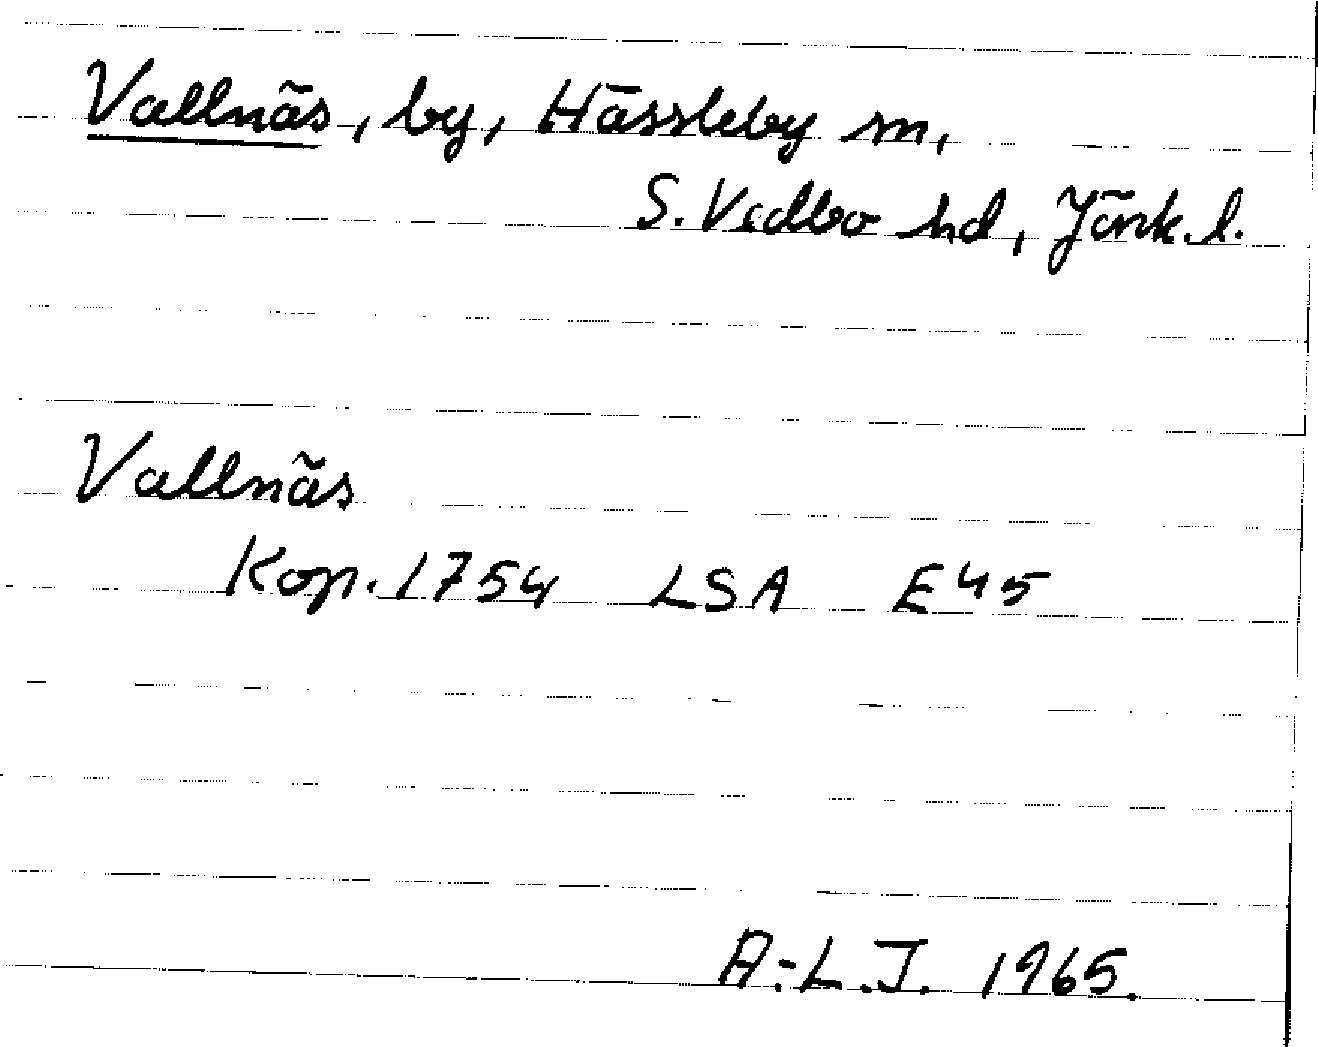 Vallnäs, by, Hässleby sn,
S. Vedbo hd, Jönk. l.
Vallnäs
Kop. 1754 LSA E45
A.-L.J. 1965.